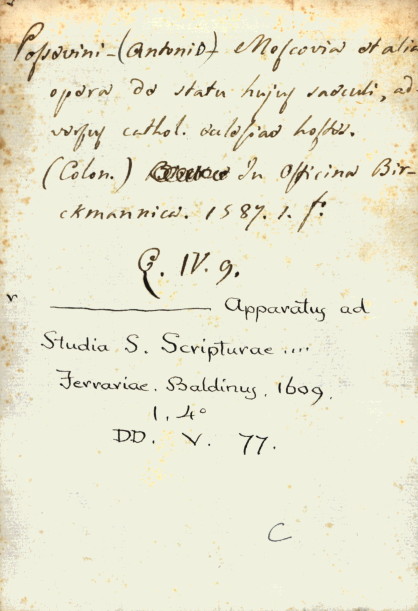 Possevini-(Antonio)- Moscovia et alia
opera de statu hujus saeculi, ad-
versus cathol. eclesiae hostes.
(Colon.) In Officina Bir-
ckmannica. 1587. 1. f.
Q. IV. 9.
v ———— Apparatus ad
Studia S. Scripturae ....
Ferrariae. Baldinus, 1609.
1. 4°
DD. V. 77.
C